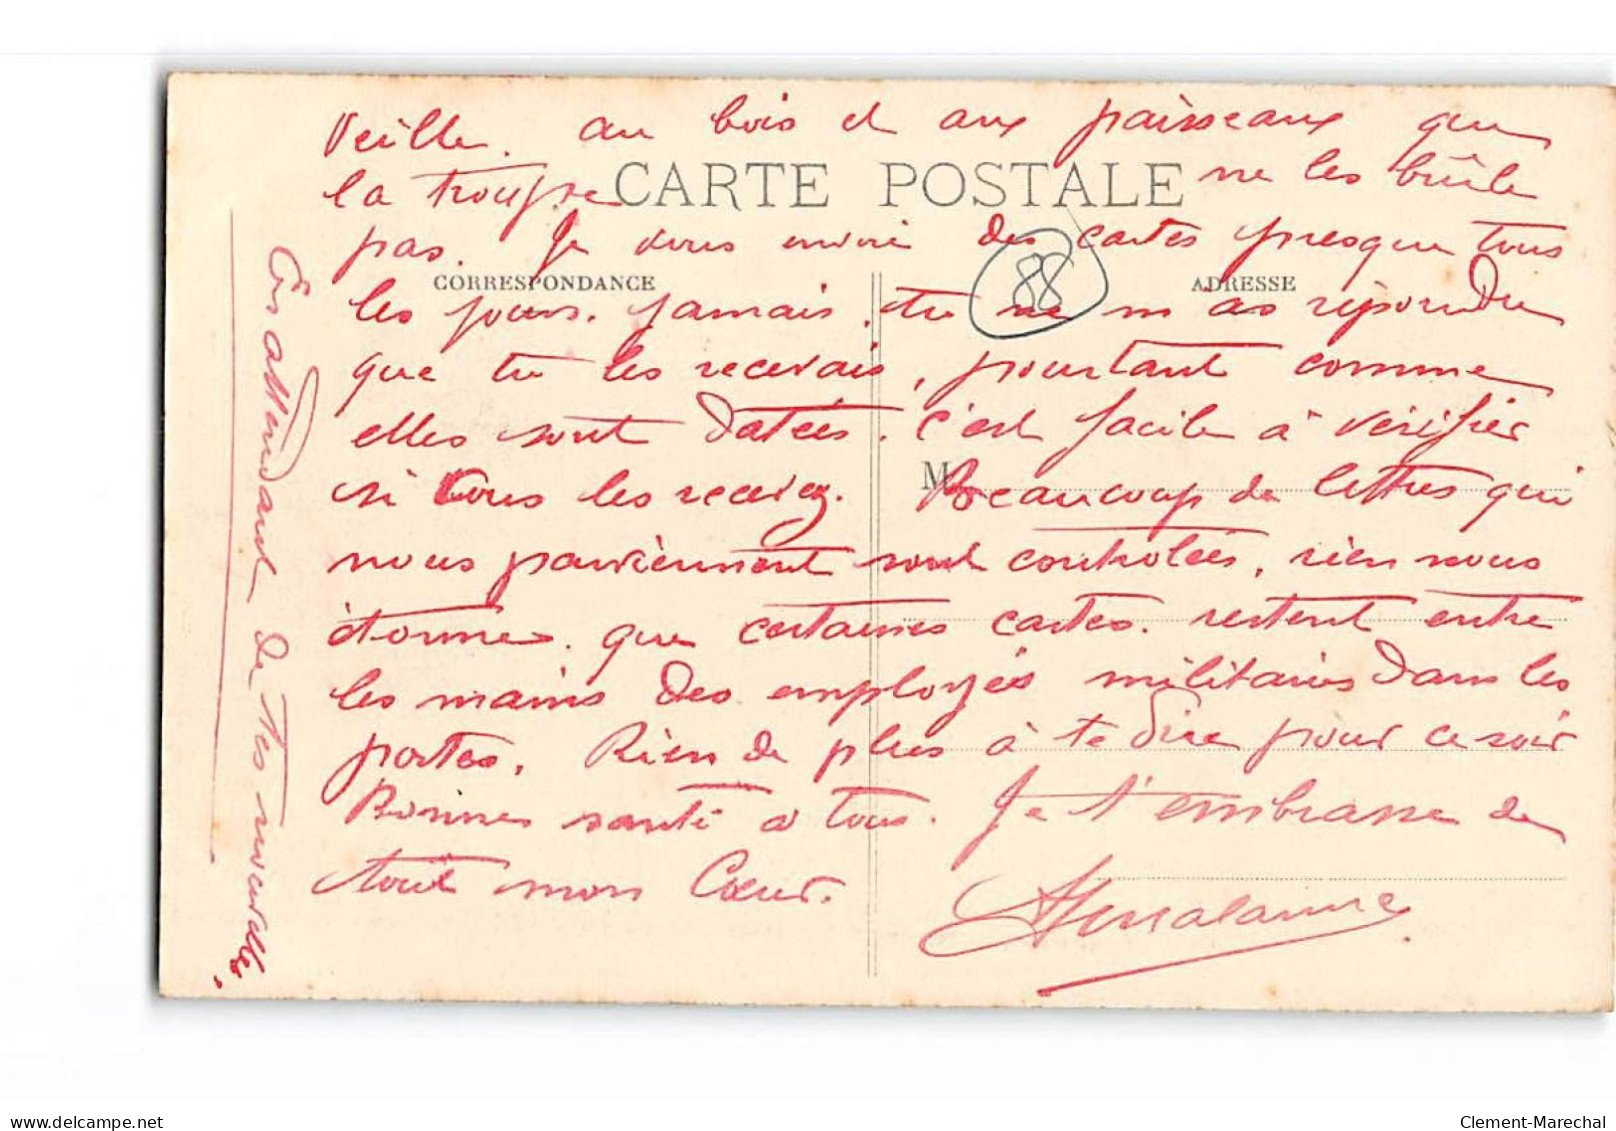 Veille. au bois et aux paisseaux que
la troupe ne les brûle
CARTE POSTALE
pas. Je vous envoie des cartes presque tous
88
CORRESPONDANCE
ADRESSE
les jours. Jamais tu ne m as répondu
que tu les recevais, pourtant comme
elles sont datées. c'est facile à vérifier
si vous les recevez. Beaucoup de lettres qui
M
nous parviennent sont contrôlées, rien nous
étonne. que certaines cartes. restent entre
les mains des employés militaires dans les
postes. Rien de plus à te dire pour ce soir
Bonnes santé a tous. Je t'embrasse de
tout mon Cœur.
En attendant de tes nouvelles.
www.delcampe.net
Clement-Marechal